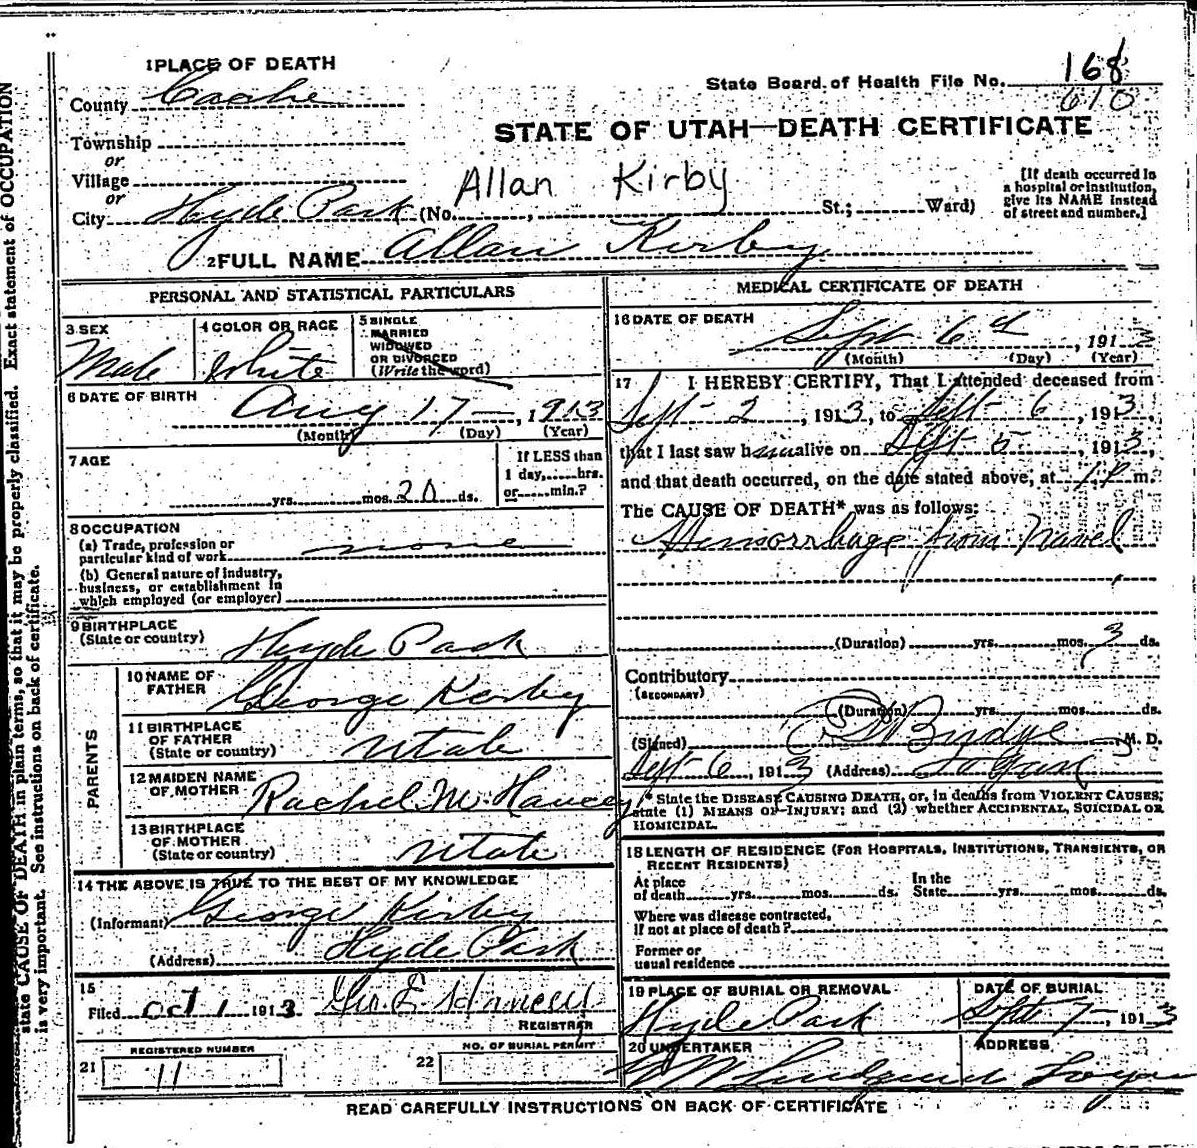 state CAUSE OF DEATH in plain terms, so that it may be properly classified. Exact statement of OCCUPATION
is very important. See instructions on back of certificate.
1 PLACE OF DEATH
County Cache
Township
or
Village
or
City Hyde Park (No. , St.; Ward)
State Board of Health File No. 168
610
STATE OF UTAH—DEATH CERTIFICATE
Allan Kirby
[If death occurred in
a hospital or institution,
give its NAME instead
of street and number.]
2 FULL NAME Allan Kirby
PERSONAL AND STATISTICAL PARTICULARS
3 SEX
Male
4 COLOR OR RACE
White
5 SINGLE
MARRIED
WIDOWED
OR DIVORCED
(Write the word)
6 DATE OF BIRTH
Aug 17 — , 1913
(Month) (Day) (Year)
7 AGE
yrs. mos. 20 ds.
If LESS than
1 day, hrs.
or min.?
8 OCCUPATION
(a) Trade, profession or
particular kind of work none
(b) General nature of industry,
business, or establishment in
which employed (or employer)
9 BIRTHPLACE
(State or country) Hyde Park
PARENTS
10 NAME OF
FATHER George Kirby
11 BIRTHPLACE
OF FATHER
(State or country) Utah
12 MAIDEN NAME
OF MOTHER Rachel M. Hancey
13 BIRTHPLACE
OF MOTHER
(State or country) Utah
14 THE ABOVE IS TRUE TO THE BEST OF MY KNOWLEDGE
(Informant) George Kirby
(Address) Hyde Park
15
Filed Oct 1 1913 Geo. E. Hancey
REGISTRAR
REGISTERED NUMBER
21 11
NO. OF BURIAL PERMIT
22
MEDICAL CERTIFICATE OF DEATH
16 DATE OF DEATH
Sept 6th , 1913
(Month) (Day) (Year)
17 I HEREBY CERTIFY, That I attended deceased from
Sept - 2 , 1913, to Sept - 6 , 1913,
that I last saw him alive on Sept - 5 , 1913,
and that death occurred, on the date stated above, at 1 P m.
The CAUSE OF DEATH* was as follows:
Hemorrhage from Navel
(Duration) yrs. mos. 3 ds.
Contributory
(SECONDARY)
(Duration) yrs. mos. ds.
(Signed) Budge M. D.
Sept 6, 1913 (Address) Logan
* State the DISEASE CAUSING DEATH, or, in deaths from VIOLENT CAUSES,
state (1) MEANS OF INJURY; and (2) whether ACCIDENTAL, SUICIDAL OR
HOMICIDAL.
18 LENGTH OF RESIDENCE (FOR HOSPITALS, INSTITUTIONS, TRANSIENTS, OR
RECENT RESIDENTS)
At place
of death yrs. mos. ds.
In the
State yrs. mos. ds.
Where was disease contracted,
if not at place of death?
Former or
usual residence
19 PLACE OF BURIAL OR REMOVAL
Hyde Park
DATE OF BURIAL
Sept 7 , 1913
20 UNDERTAKER
ADDRESS
Logan
READ CAREFULLY INSTRUCTIONS ON BACK OF CERTIFICATE